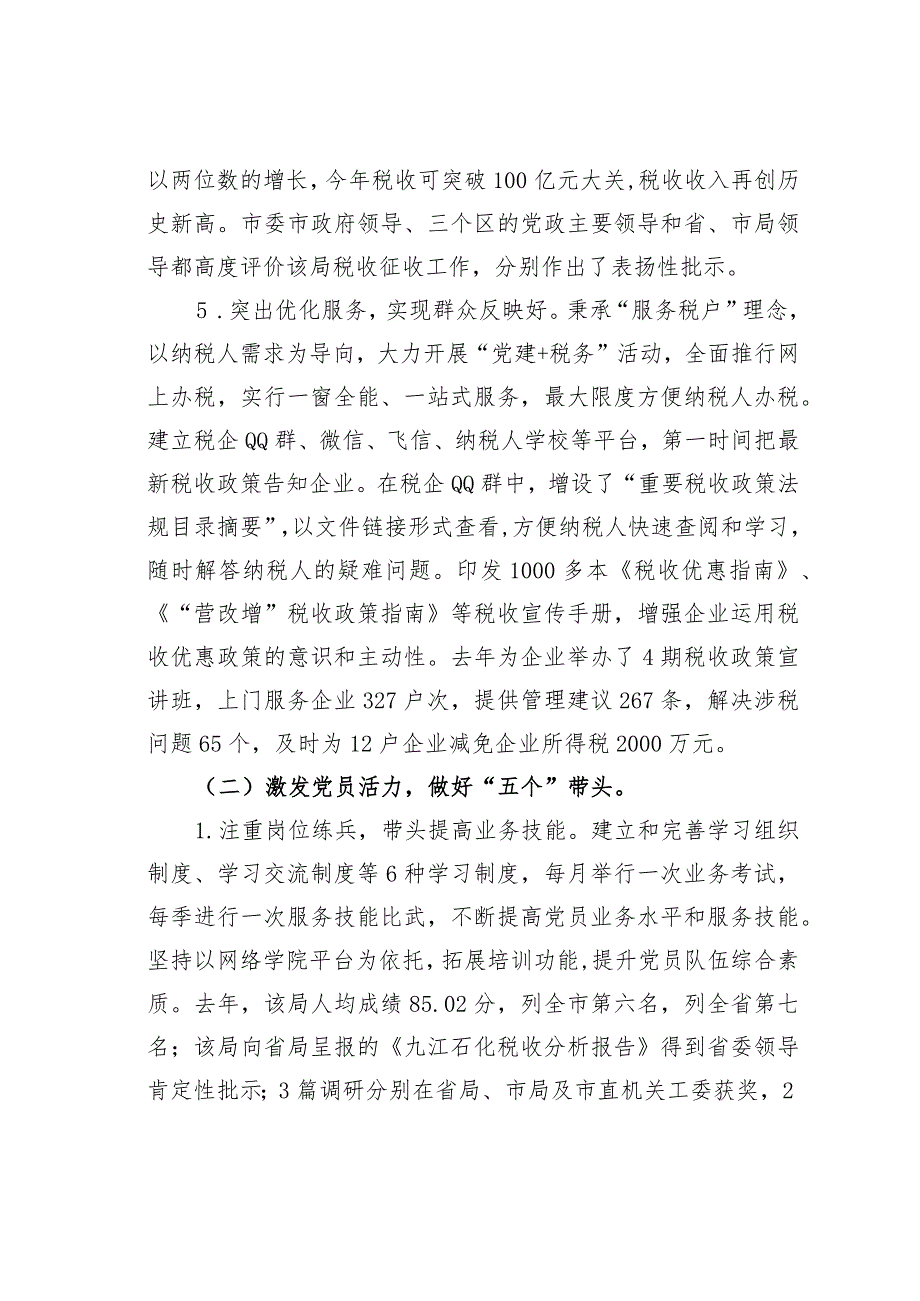 以两位数的增长，今年税收可突破100亿元大关,税收收入再创历
史新高。市委市政府领导、三个区的党政主要领导和省、市局领
导都高度评价该局税收征收工作，分别作出了表扬性批示。
5.突出优化服务，实现群众反映好。秉承“服务税户”理念，
以纳税人需求为导向，大力开展“党建+税务”活动，全面推行网
上办税，实行一窗全能、一站式服务，最大限度方便纳税人办税。
建立税企QQ群、微信、飞信、纳税人学校等平台，第一时间把最
新税收政策告知企业。在税企QQ群中，增设了“重要税收政策法
规目录摘要”,以文件链接形式查看,方便纳税人快速查阅和学习，
随时解答纳税人的疑难问题。印发1000多本《税收优惠指南》、
《“营改增”税收政策指南》等税收宣传手册，增强企业运用税
收优惠政策的意识和主动性。去年为企业举办了4期税收政策宣
讲班，上门服务企业327户次，提供管理建议267条，解决涉税
问题65个，及时为12户企业减免企业所得税2000万元。
（二）激发党员活力，做好“五个”带头。
1.注重岗位练兵，带头提高业务技能。建立和完善学习组织
制度、学习交流制度等6种学习制度，每月举行一次业务考试，
每季进行一次服务技能比武，不断提高党员业务水平和服务技能。
坚持以网络学院平台为依托，拓展培训功能,提升党员队伍综合素
质。去年，该局人均成绩85.02分，列全市第六名，列全省第七
名；该局向省局呈报的《九江石化税收分析报告》得到省委领导
肯定性批示；3篇调研分别在省局、市局及市直机关工委获奖，2